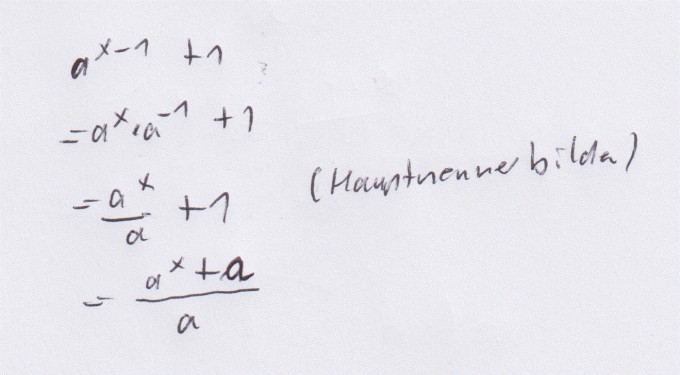 a^(x-1) + 1
= a^x · a^(-1) + 1
= a^x/a + 1 (Hauptnenner bilden)
= (a^x + a)/a